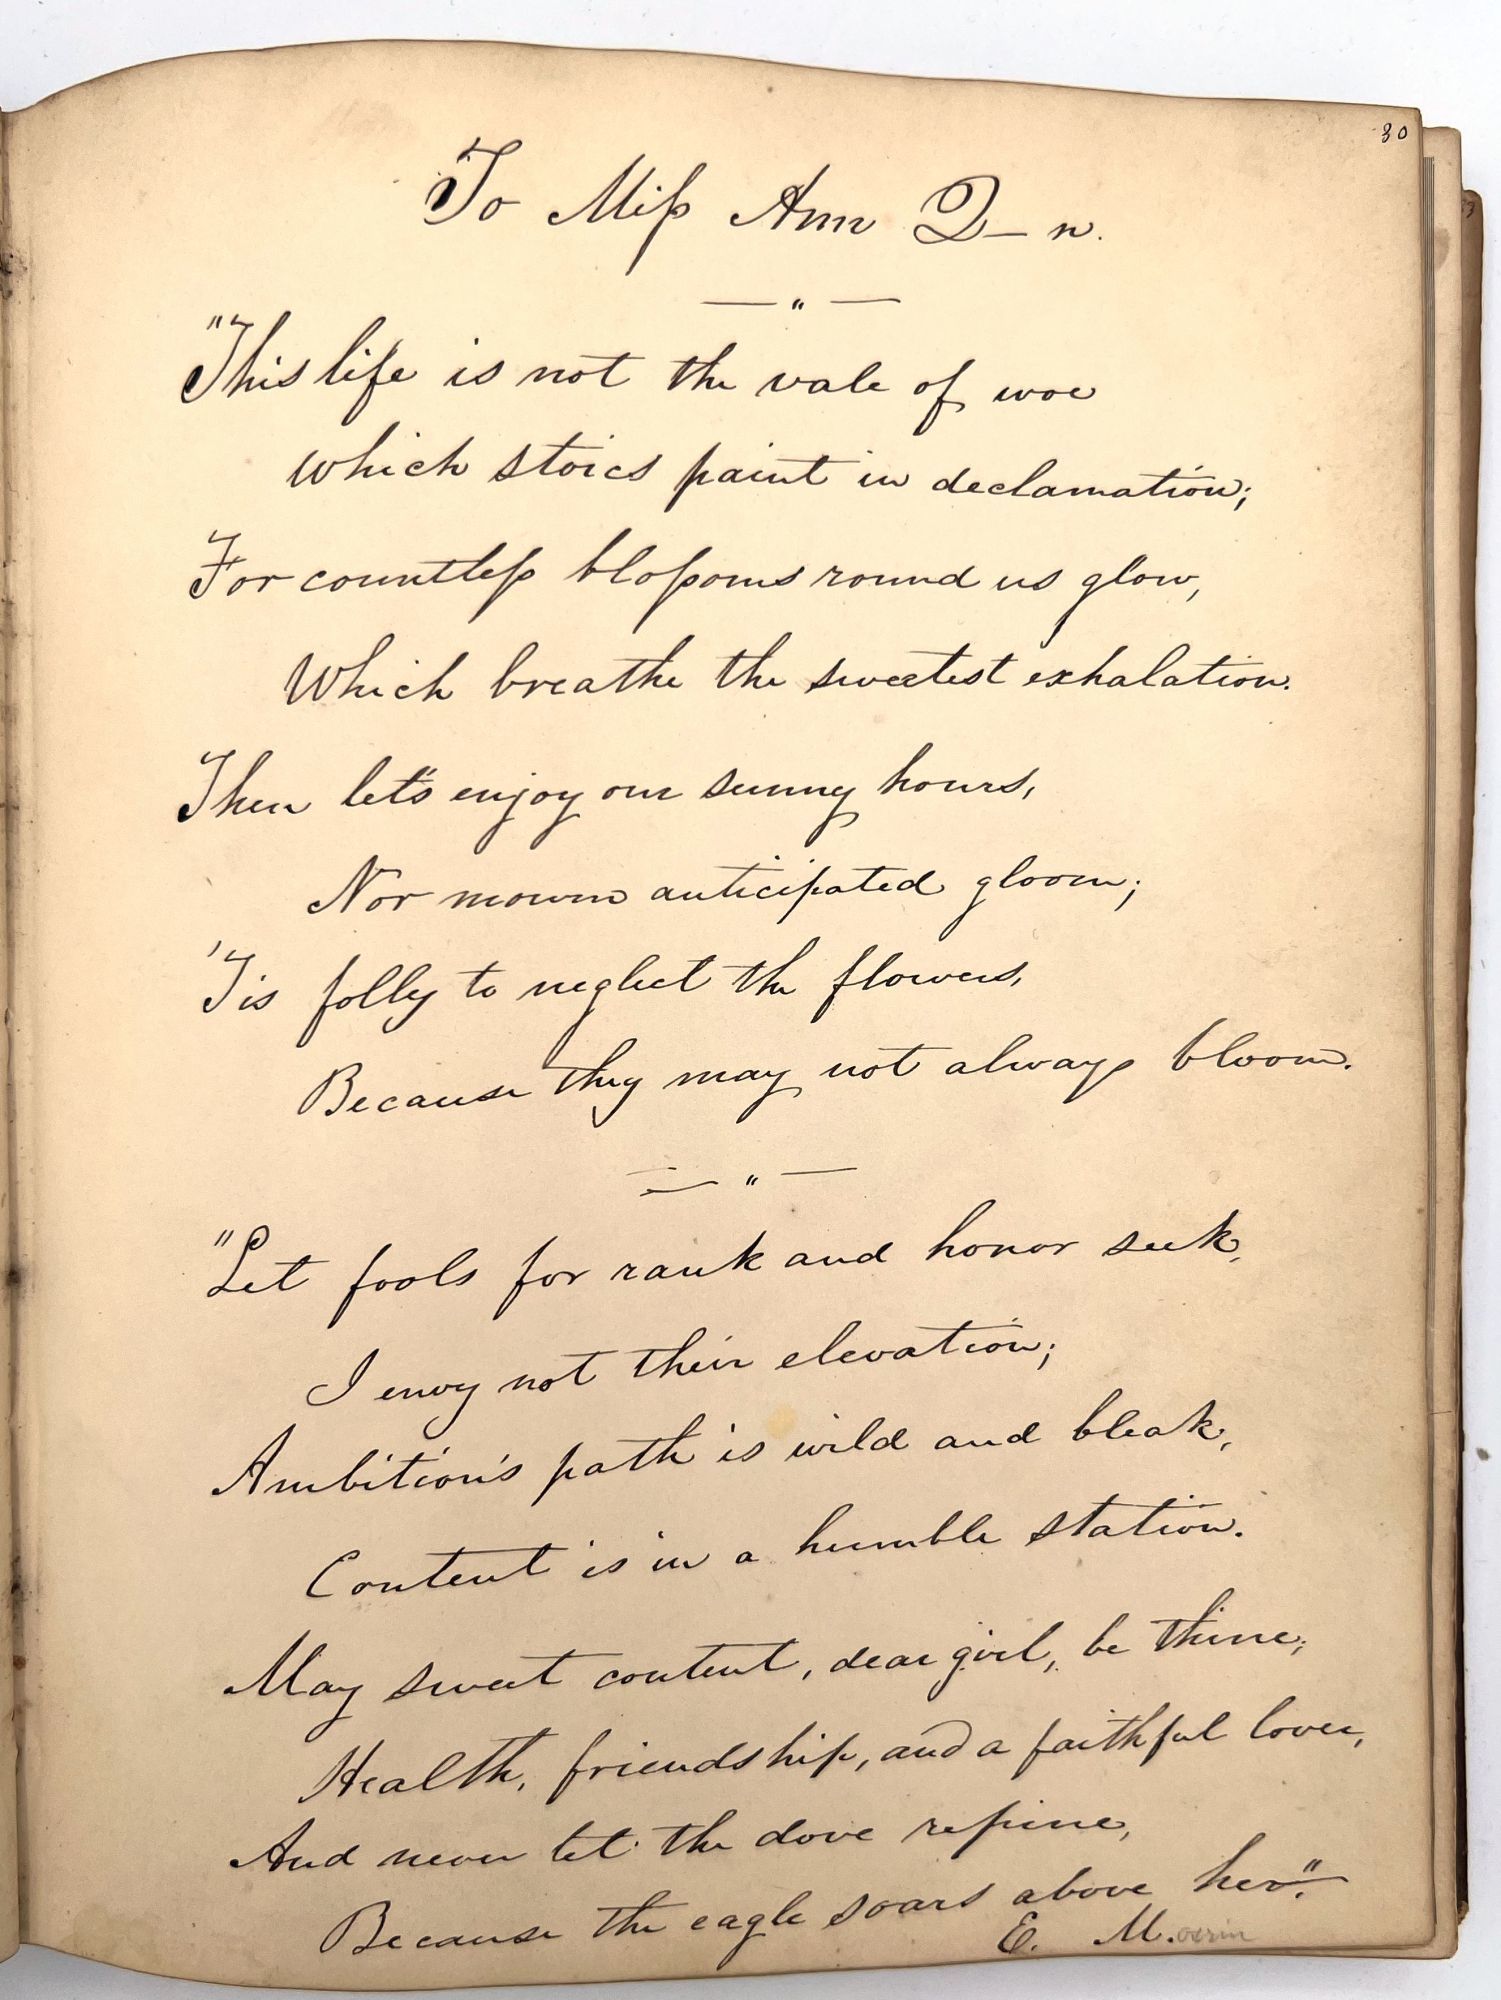 30
To Miss Ann D—n.
— " —
"This life is not the vale of woe
which stoics paint in declamation;
For countless blossoms round us glow,
Which breathe the sweetest exhalation.
Then let's enjoy our sunny hours,
Nor mourn anticipated gloom;
'Tis folly to neglect the flowers,
Because they may not always bloom.
— " —
"Let fools for rank and honor seek,
I envy not their elevation;
Ambition's path is wild and bleak,
Content is in a humble station.
May sweet content, dear girl, be thine;
Health, friendship, and a faithful lover,
And never let the dove repine,
Because the eagle soars above her."
E. M.